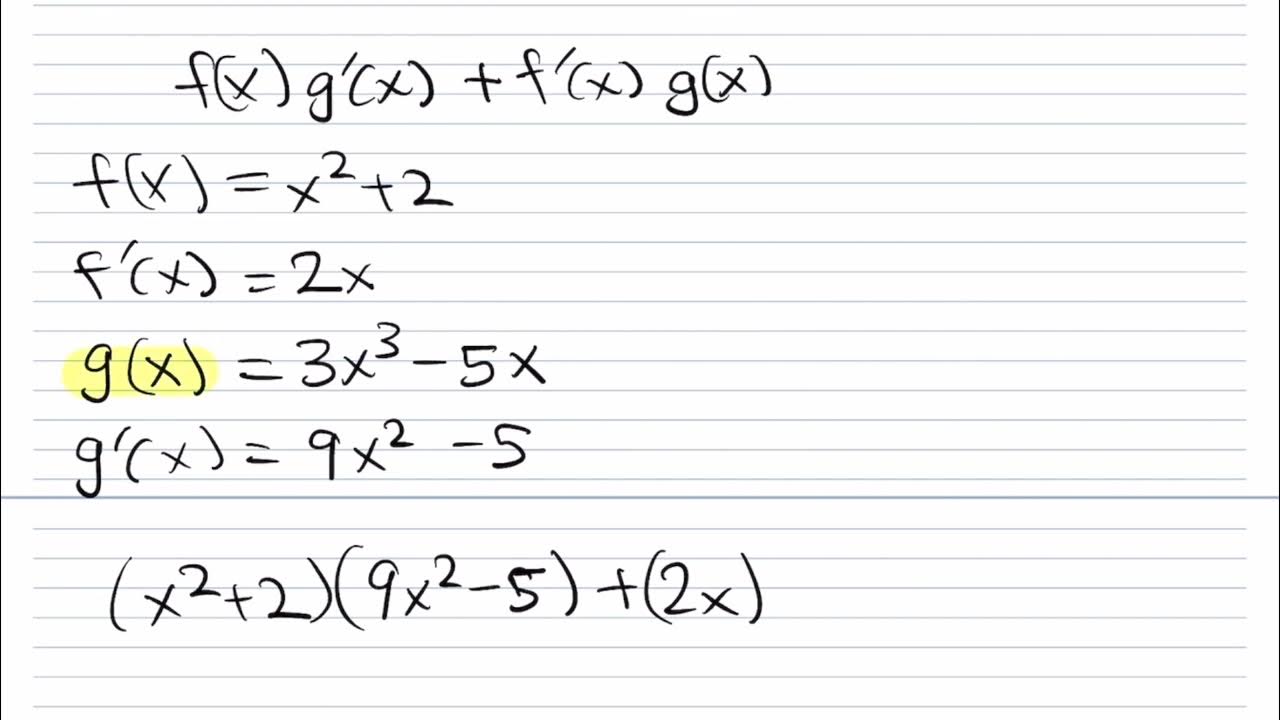 f(x) g′(x) + f′(x) g(x)
f(x) = x² + 2
f′(x) = 2x
g(x) = 3x³ − 5x
g′(x) = 9x² − 5
(x² + 2)(9x² − 5) + (2x)